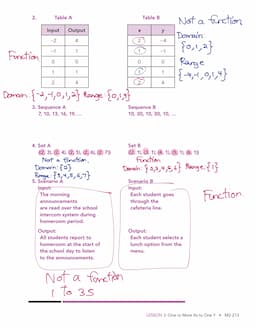 2. Table A Table B
Not a function
Input Output x y
-2 4 2 4
-1 1 1 -1
0 0 0 0
1 1 1 1
2 4 2 4
Function
Domain
{0, 1, 2}
Range
{-4, -1, 0, 1, 4}
Domain: {-2, -1, 0, 1, 2} Range {0, 1, 4}
3. Sequence A Sequence B
7, 10, 13, 16, 19, ... 10, 30, 10, 30, 10, ...
4. Set A Set B
Not a function. Function
Domain: {0} Domain: {0, 3, 4, 5, 6} Range: {1}
Range: {3, 4, 5, 6, 7}
5. Scenario A Scenario B
Input: Input:
The morning Each student goes
announcements through the
are read over the school cafeteria line.
intercom system during
homeroom period.
Function
Output: Output:
All students report to Each student selects a
homeroom at the start of lunch option from the
the school day to listen menu.
to the announcements.
Not a function
1 to 35
LESSON 3: One or More Xs to One Y • M2-213